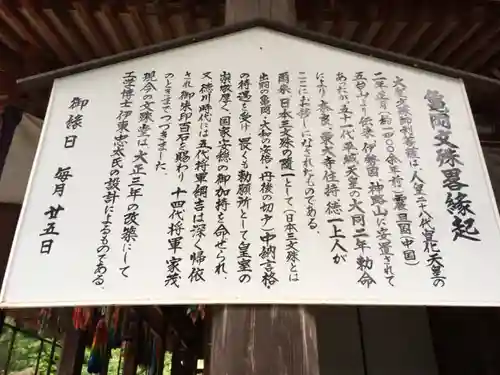 亀岡文殊畧縁起
大聖文殊師利菩薩は、人皇二十八代宣化天皇の
二年己月(約一四〇〇余年前)震旦國(中国)
五台山より伝来、伊勢國神路山に安置されて
あったが、五十一代平城天皇の大同二年勅命
により、奈良東大寺住持、徳一上人が
ここにお移しになられたものである。
爾来、日本三文殊の随一として(日本三文殊とは
出羽の亀岡、大和の安倍、丹後の切戸)中納言格
の待遇を受け畏くも勅願所として皇室の
崇敬厚く、国家安穏の御加持を命ぜられ、
又、徳川時代には五代将軍綱吉は深く帰依
され御朱印百石を賜わり、十四代将軍家茂
のときまでつづきました。
現今の文殊堂は、大正三年の改築にして
工学博士伊東忠太氏の設計によるものである。
御縁日　毎月　廿五日